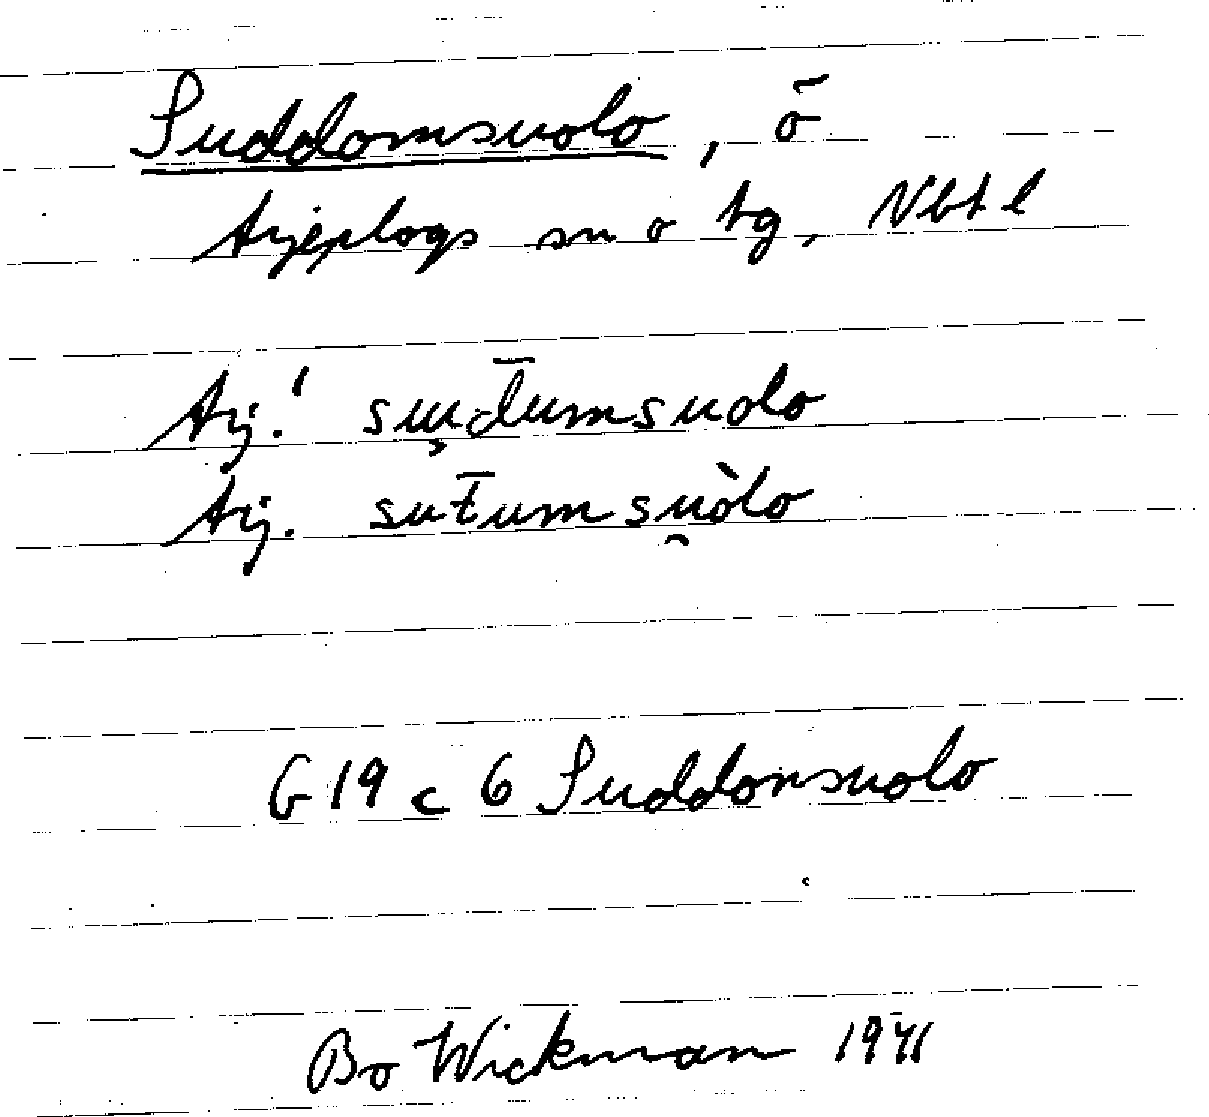 Suddomsuolo, ö
Arjeplogs sn o tg, Nbt l
Arj.! suu̧d̄umsuolo
Arj. sut̄umsu̯òlo
G 19 c 6 Suddonsuolo
Bo Wickman 1941